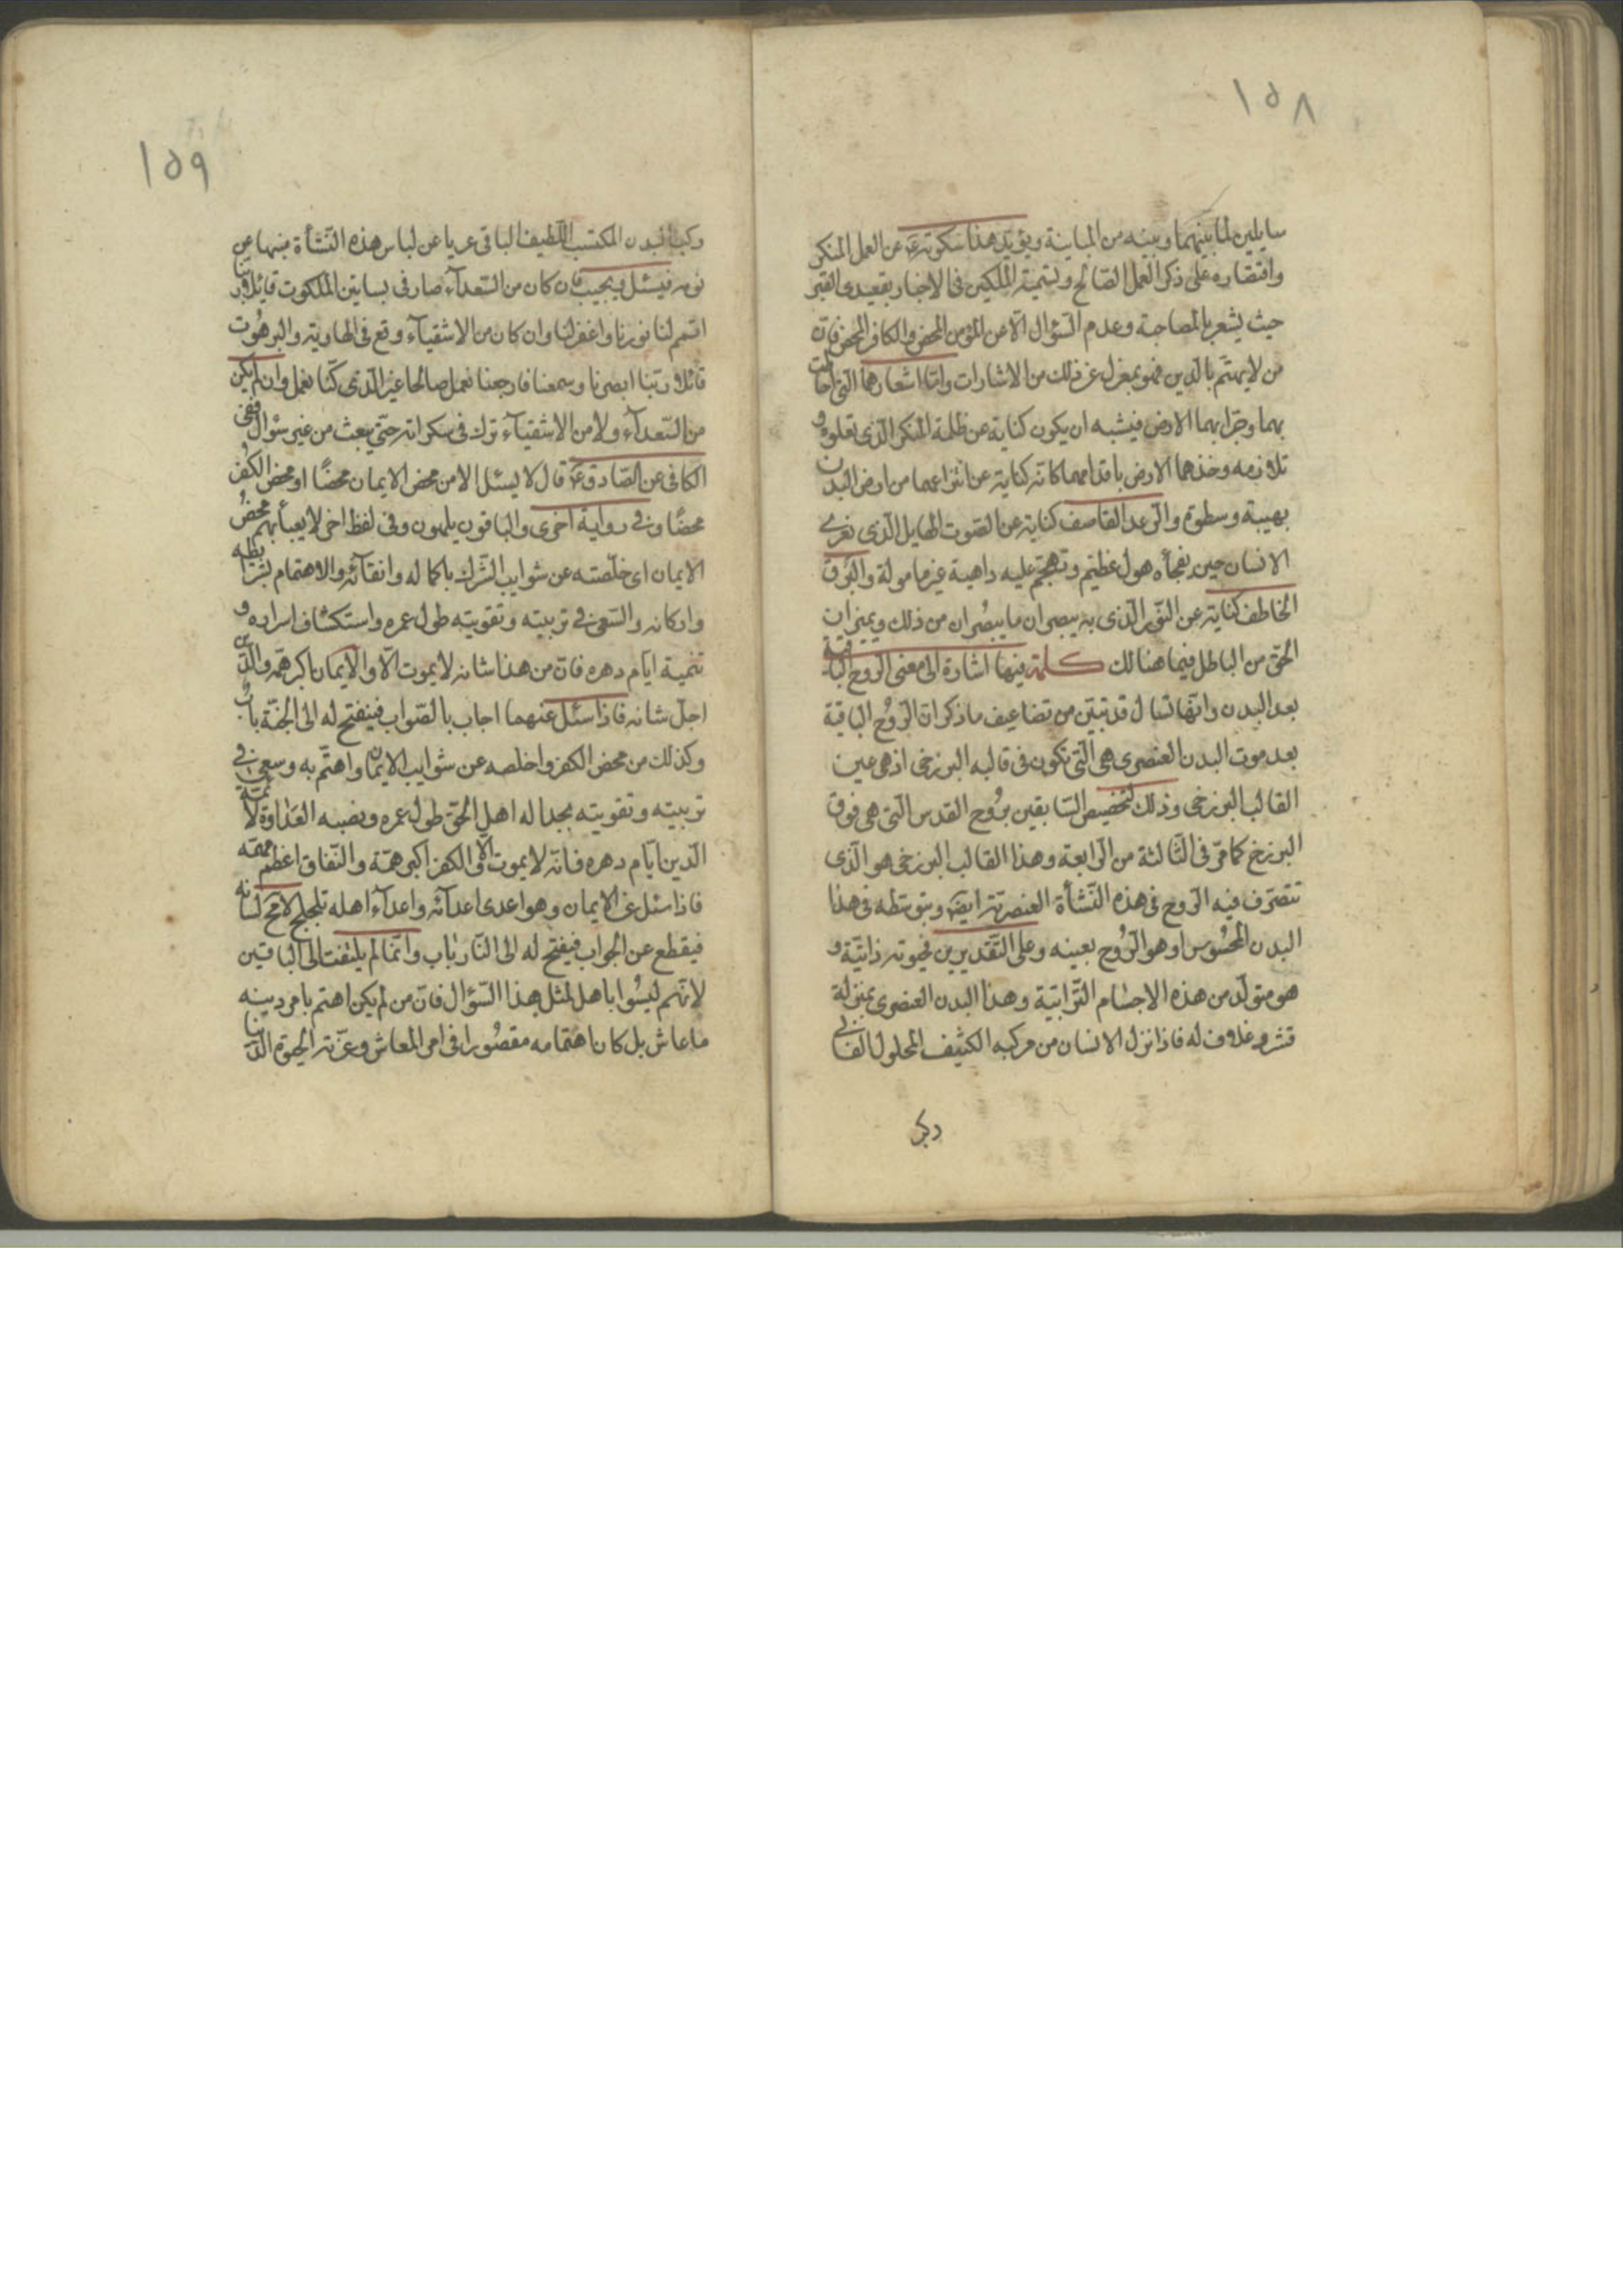 ١٥٨
سايلين لما بينهما وبينه من المباينة ويؤيد هذا سكوته عن العمل المنكر
واقتصاره على ذكر العمل الصالح وتسمية الملكين في الاخبار بقعيدي القبر
حيث يشعر بالمصاحبة وعدم السّؤال الّا عن المؤمن المحض والكافر المحض فانّ
من لا يهتمّ بالدّين فهو بمعزل عن ذلك من الاشارات وامّا اشعارهما الّتي
بهما وجرّا بهما الارض فيشبه ان يكون كناية عن ظلمة المنكر الّذي تعلوه و
تلازمه وخدهما الارض باقدامهما كانّه كناية عن انتزاعهما من ارض البدن
بهيبة وسطوة والرّعد القاصف كناية عن الصّوت الهايل الّذي
الانسان حين يفجأه هول عظيم وتهجم عليه داهية غير مامولة والبرق
الخاطف كناية عن النّور الّذي به يبصران ما يبصران من ذلك ويميزان
الحق من الباطل فيما هنالك كلمة فيها اشارة الى معنى الرّوح الباقية
بعد البدن وانّها تسال قد تبيّن من تضاعيف ما ذكر انّ الرّوح الباقية
بعد موت البدن العنصري هي الّتي تكون في قالبه البرزخي اذ هي عين
القالب البرزخي وذلك لتخصيص السّابقين بروح القدس الّتي هي فوق
البرزخ كما مرّ في الثّالثة من الرّابعة وهذا القالب البرزخي هو الّذي
تتصرّف فيه الرّوح في هذه النّشأة العنصرية ايضا وبتوسّطه في هذا
البدن المحسوس او هو الرّوح بعينه وعلى التّقديرين فحيوته ذاتيّة و
هو متولّد من هذه الاجسام التّرابيّة وهذا البدن العنصري بمنزلة
قشر وغلاف له فاذا نزل الانسان من مركبه الكثيف المحلول الفاني
وركب
١٥٩
وركب البدن المكتسب اللّطيف الباقي عريا عن لباس هذه النّشأة منبها عن
نومه فيسئل فيجيب فان كان من السّعدآء صار في بساتين الملكوت قائلا ربّنا
اتمم لنا نورنا واغفر لنا وان كان من الاشقيآء وقع في الهاوية والبرهوت
قائلا ربّنا ابصرنا وسمعنا فارجعنا نعمل صالحا غير الّذي كنّا نعمل وان لم يكن
من السّعدآء ولا من الاشقيآء ترك في سكراته حتّى يبعث من غير سئوال ففي
الكافي عن الصّادق ع قال لا يسئل الا من محض الايمان محضًا او محض الكفر
محضًا وفي رواية اخرى والباقون يلهون وفي لفظ اخر لا يعبأ بهم محض
الايمان اي خلّصته عن شوايب الشّرك باكماله وانقآئه والاهتمام بشرايطه
واركانه والسّعي في تربيته وتقويته طول عمره واستكشاف اسراره و
تنمية ايّام دهره فانّ من هذا شانه لا يموت الّا والايمان اكبر همّه والدّين
اجلّ شانه فاذا سئل عنهما اجاب بالصّواب فينفتح له الى الجنّة باب
وكذلك من محض الكفر واخلصه عن شوايب الايمان واهتمّ به وسعى في
تربيته وتقويته بجداله اهل الحق طول عمره ونصبه العداوة لائمّة
الدّين ايّام دهره فانّه لا يموت الّا والكفر اكبر همّه والنّفاق اعظم
فاذا سئل عن الايمان وهو اعدى اعدآئه واعدآء اهله تلجلج لا محالة لسانه
فيقطع عن الجواب فيفتح له الى النّار باب وانّما لم يلتفت الى الباقين
لانّهم ليسوا باهل لمثل هذا السّؤال فانّ من لم يكن اهتم بامر دينه
ما عاش بل كان اهتمامه مقصورا في امر المعاش وغرّته الحيوة الدّنيا